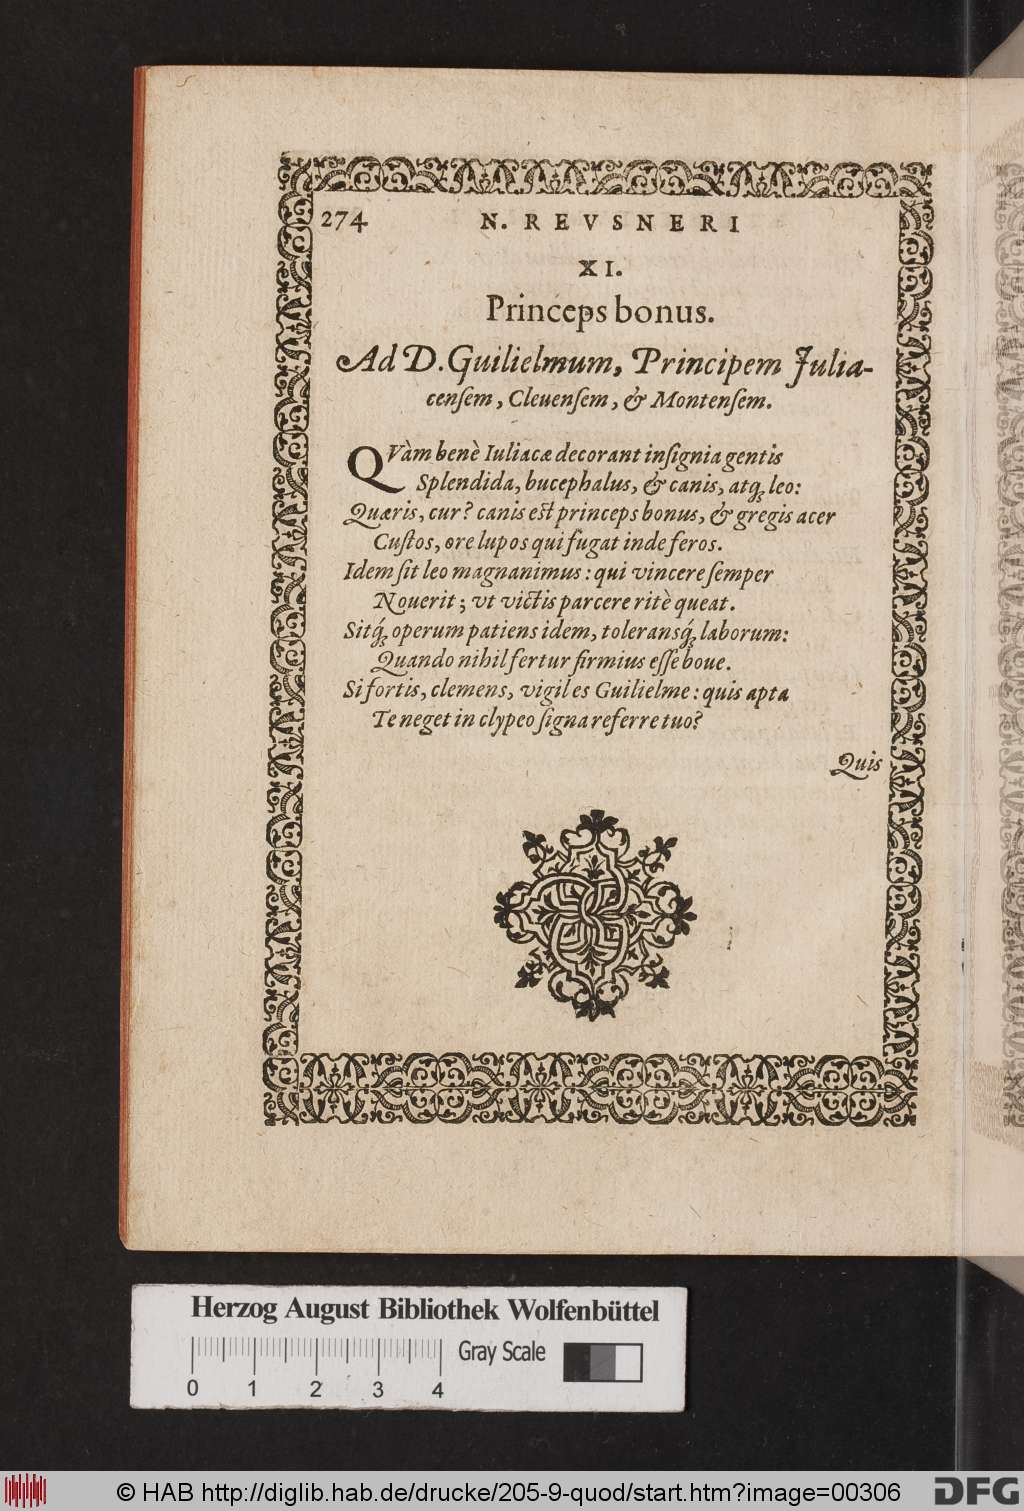 274 N. REVSNERI
XI.
Princeps bonus.
Ad D. Guilielmum, Principem Julia-
censem, Cleuensem, & Montensem.
QVàm benè Iuliacæ decorant insignia gentis
Splendida, bucephalus, & canis, atq́; leo:
Quæris, cur? canis est princeps bonus, & gregis acer
Custos, ore lupos qui fugat inde feros.
Idem sit leo magnanimus: qui vincere semper
Nouerit; vt victis parcere ritè queat.
Sitq́; operum patiens idem, toleransq́; laborum:
Quando nihil fertur firmius esse boue.
Si fortis, clemens, vigil es Guilielme: quis apta
Te neget in clypeo signa referre tuo?
Quis
Herzog August Bibliothek Wolfenbüttel
Gray Scale
0 1 2 3 4
© HAB http://diglib.hab.de/drucke/205-9-quod/start.htm?image=00306
DFG